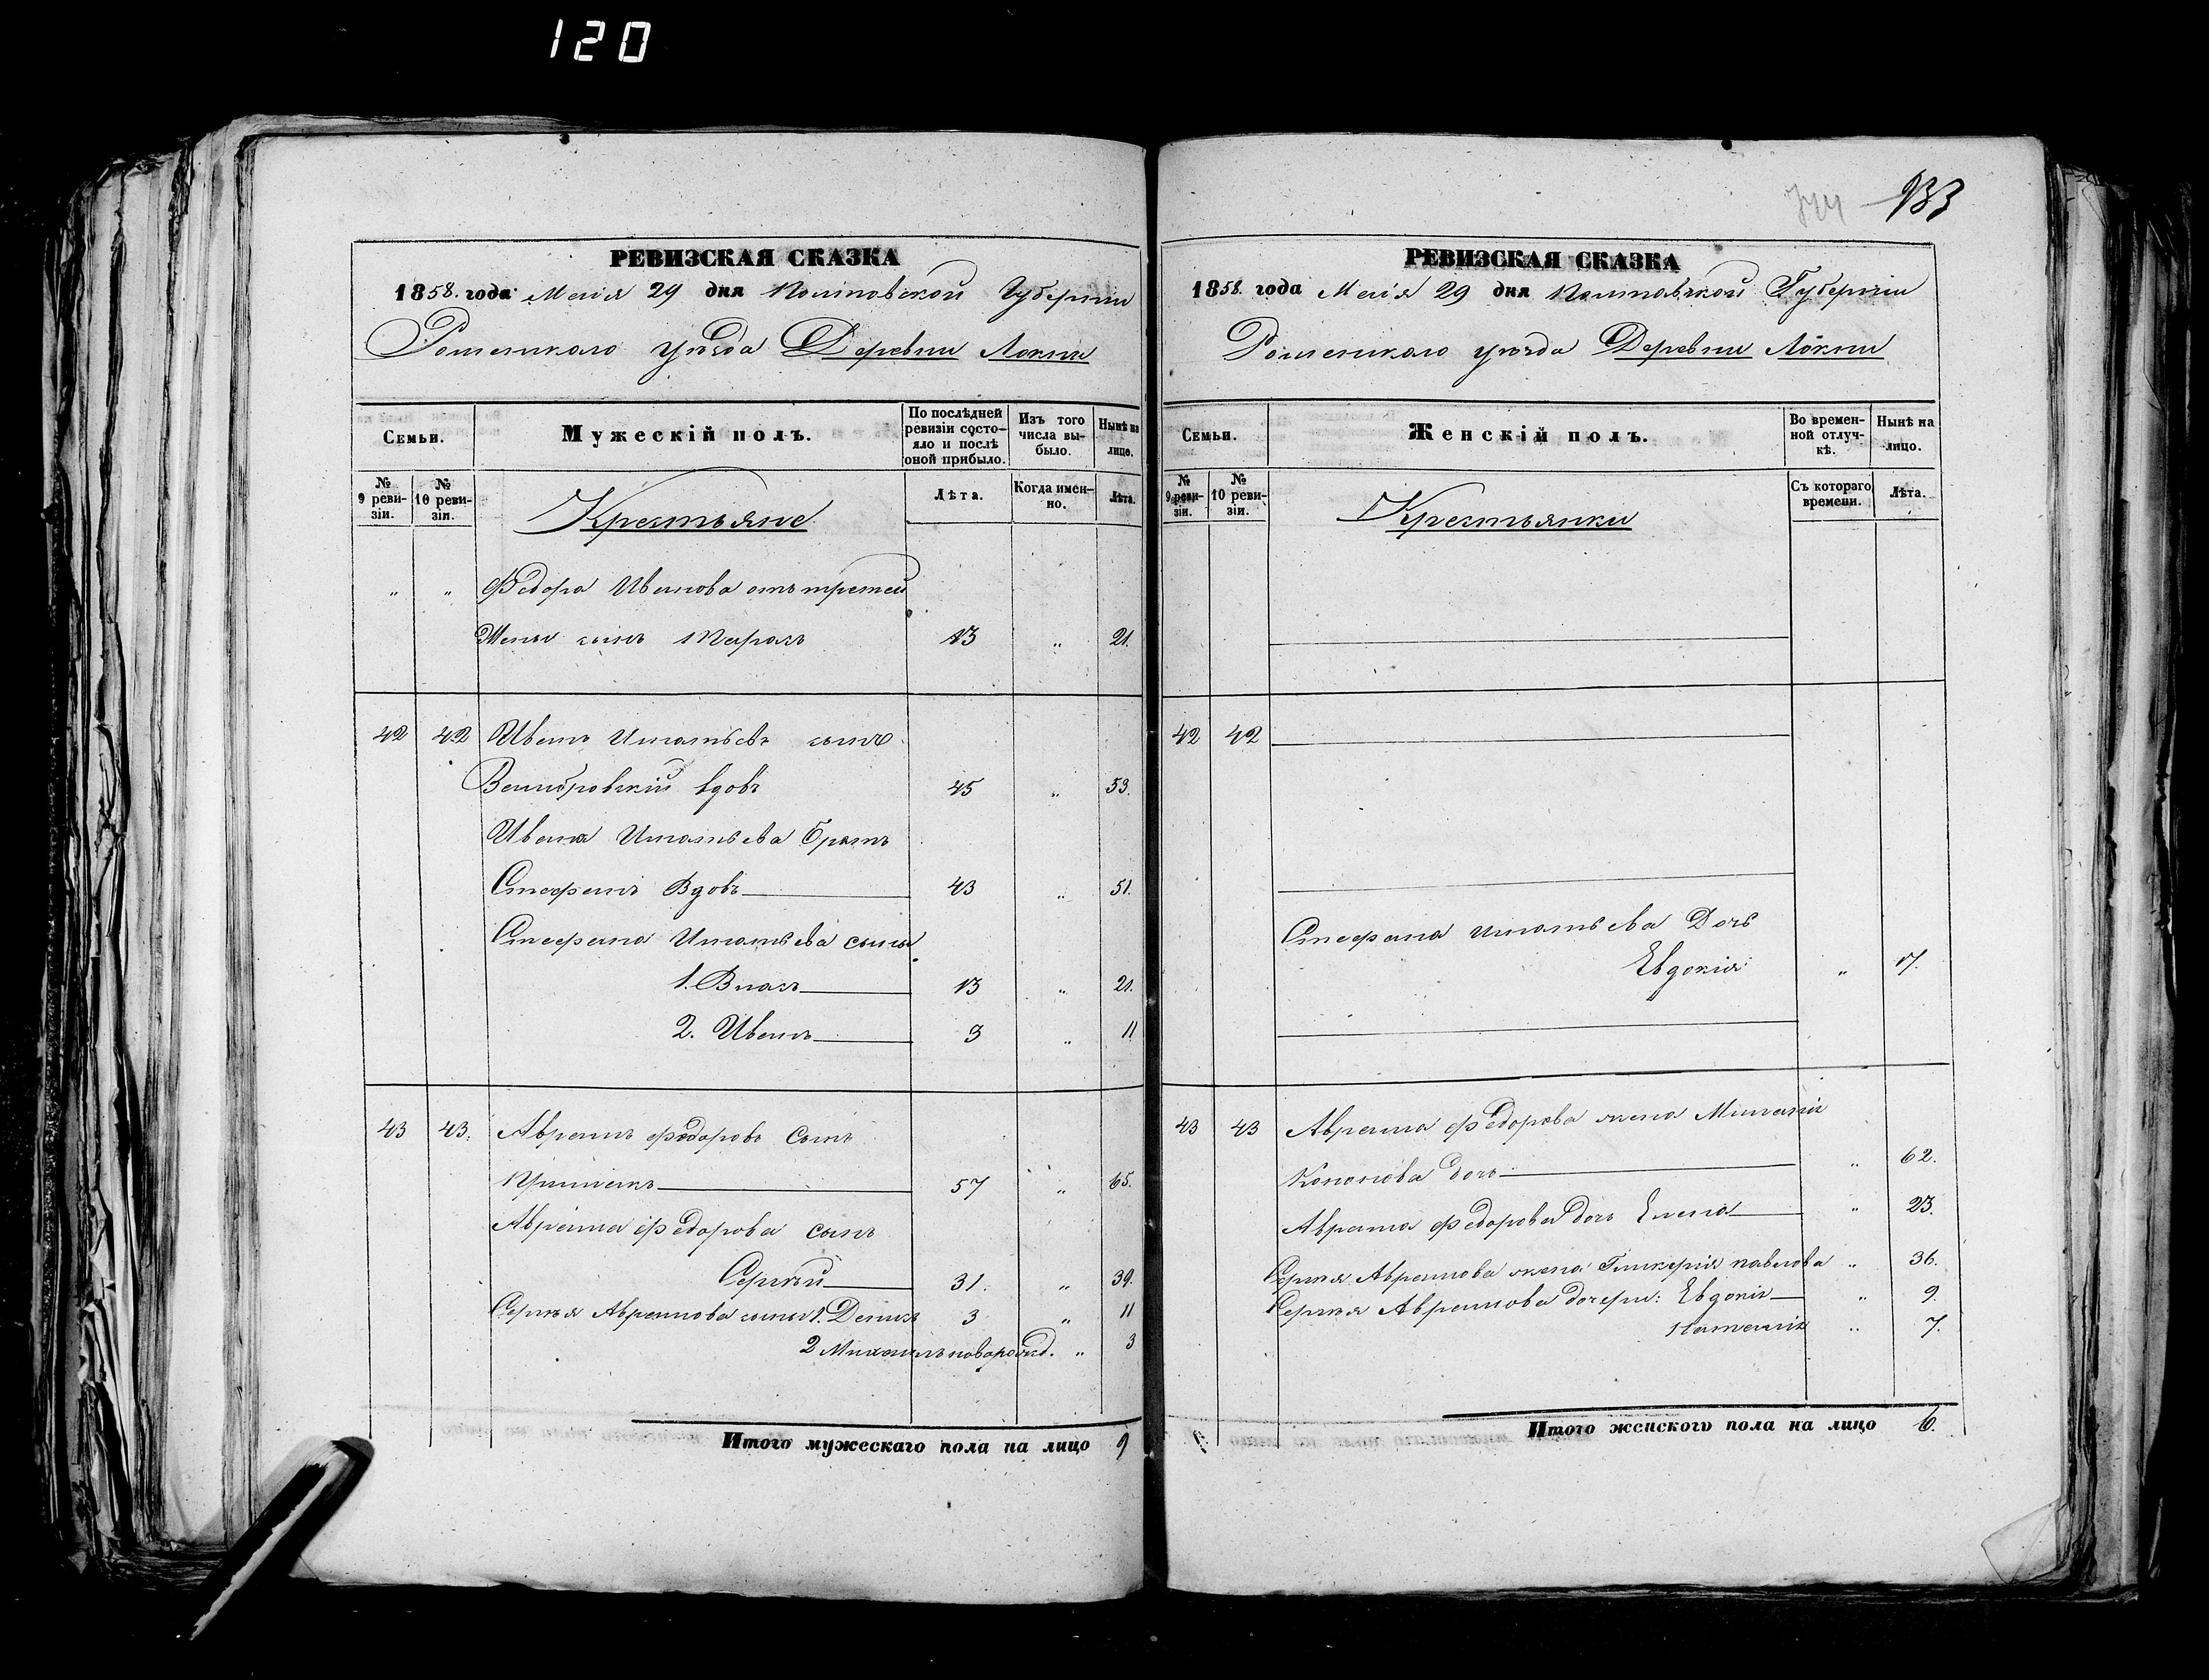 120
933
РЕВИЗСКАЯ СКАЗКА
1858. года Маія 29 дня Полтавской Губерніи
Роменскаго уѣзда Деревни Локни
Семьи.
Мужескій полъ.
По послѣдней ревизіи состояло и послѣ оной прибыло.
Изъ того числа выбыло.
Нынѣ на лицо.
№ 9 ревизіи.
№ 10 ревизіи.
Крестьяне
Лѣта.
Когда именно.
Лѣта.
" " Федора Иванова отъ третей
Жены сынъ Тарасъ 13 " 21.
42 42 Иванъ Игнатьевъ сынъ
вдовъ 45 " 53.
Ивана Игнатьева братъ
Стефанъ Вдовъ 43 " 51.
Стефана Игнатьева сыны
1. Власъ 13 " 21.
2. Иванъ 3 " 11
43 43. Аврамъ Федоровъ Сынъ
57 " 65.
Аврама Федорова сынъ
Сергѣй 31. " 39.
Сергѣя Аврамова сыны 1. Денисъ 3 " 11
2 Михаилъ новорожд. " 3
Итого мужескаго пола на лицо 9
РЕВИЗСКАЯ СКАЗКА
1858. года Маія 29 дня Полтавской Губерніи
Роменскаго уѣзда Деревни Локни
Семьи.
Женскій полъ.
Во временной отлучкѣ.
Нынѣ на лицо.
№ 9 ревизіи.
№ 10 ревизіи.
Крестьянки
Съ котораго времени.
Лѣта.
42 42
Стефана Игнатьева Дочь
Евдокія " 17.
43 43 Аврама Федорова жена Миланія
Кононова дочь " 62.
Аврама Федорова дочь Елена " 23.
Сергѣя Аврамова жена Гликерія павлова " 36.
Сергѣя Аврамова дочери: Евдокія " 9.
Наталія " 7.
Итого женского пола на лицо 6.